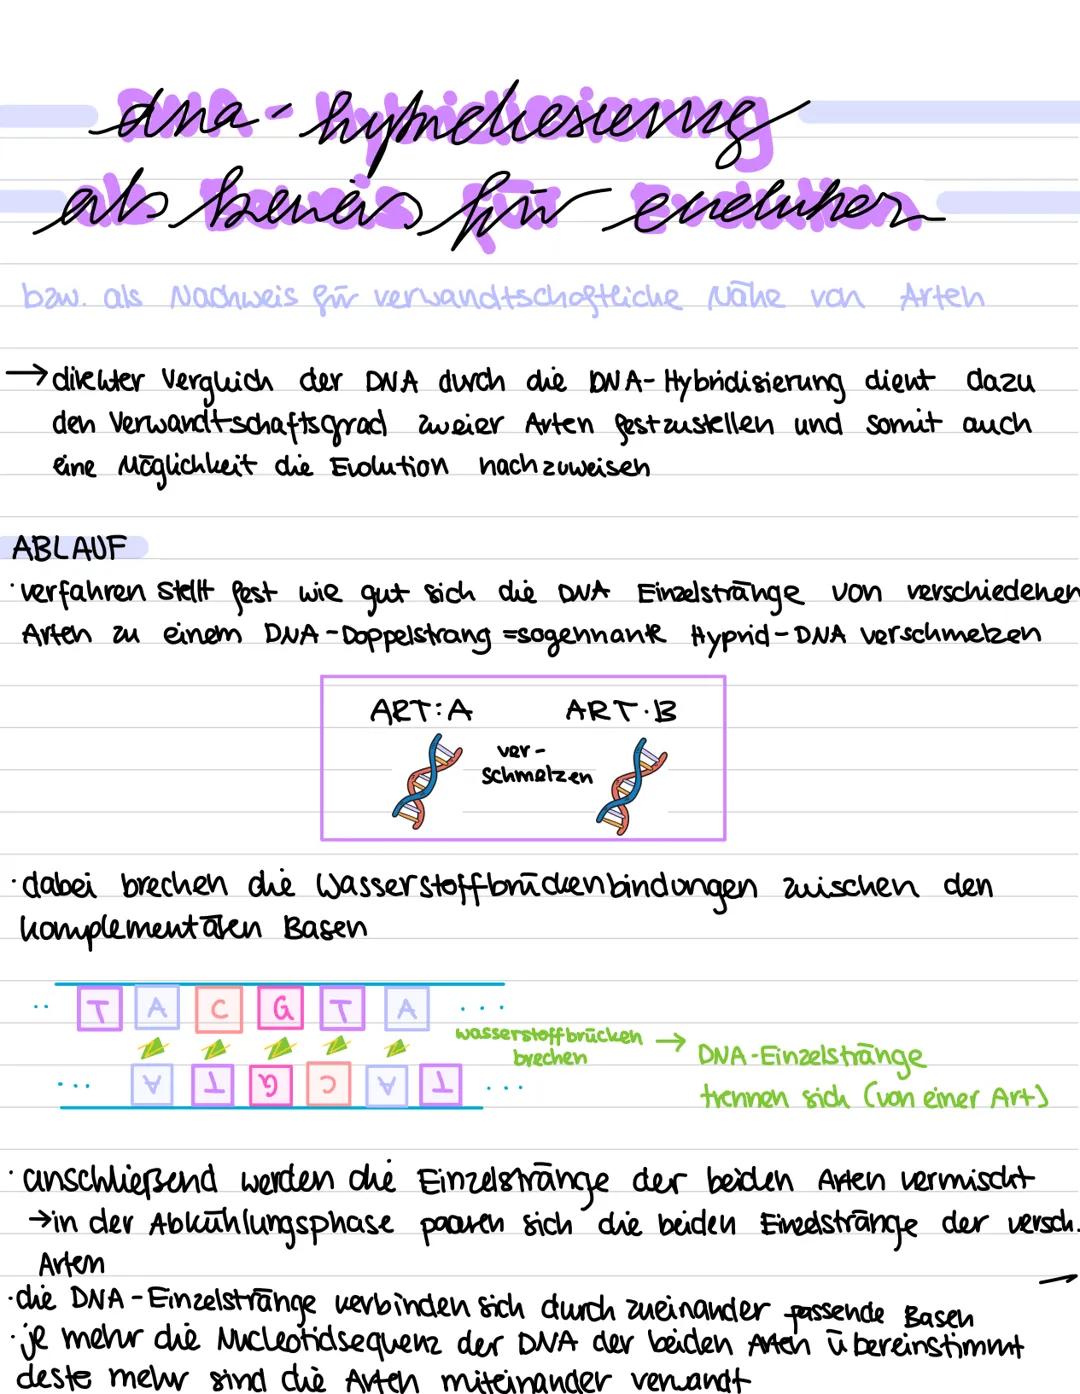 dna-hybridiesierung
als beweis für evolution
bzw. als Nachweis für verwandtschaftliche Nähe von Arten
→ direkter Vergleich der DNA durch die DNA-Hybridisierung dient dazu
den Verwandtschaftsgrad zweier Arten festzustellen und somit auch
eine Möglichkeit die Evolution nachzuweisen
ABLAUF
· verfahren stellt fest wie gut sich die DNA Einzelstränge von verschiedenen
Arten zu einem DNA-Doppelstrang = sogennante Hyprid-DNA verschmelzen
ART: A ART: B
ver-
schmelzen
· dabei brechen die Wasserstoffbrückenbindungen zwischen den
komplementären Basen
.. T A C G T A ...
wasserstoffbrücken →
brechen
DNA-Einzelstränge
trennen sich (von einer Art)
... A T G C A T ...
· anschließend werden die Einzelstränge der beiden Arten vermischt
→ in der Abkühlungsphase paaren sich die beiden Einzelstränge der versch.
Arten
· die DNA-Einzelstränge verbinden sich durch zueinander passende Basen
· je mehr die Nucleotidsequenz der DNA der beiden Arten übereinstimmt
desto mehr sind die Arten miteinander verwandt